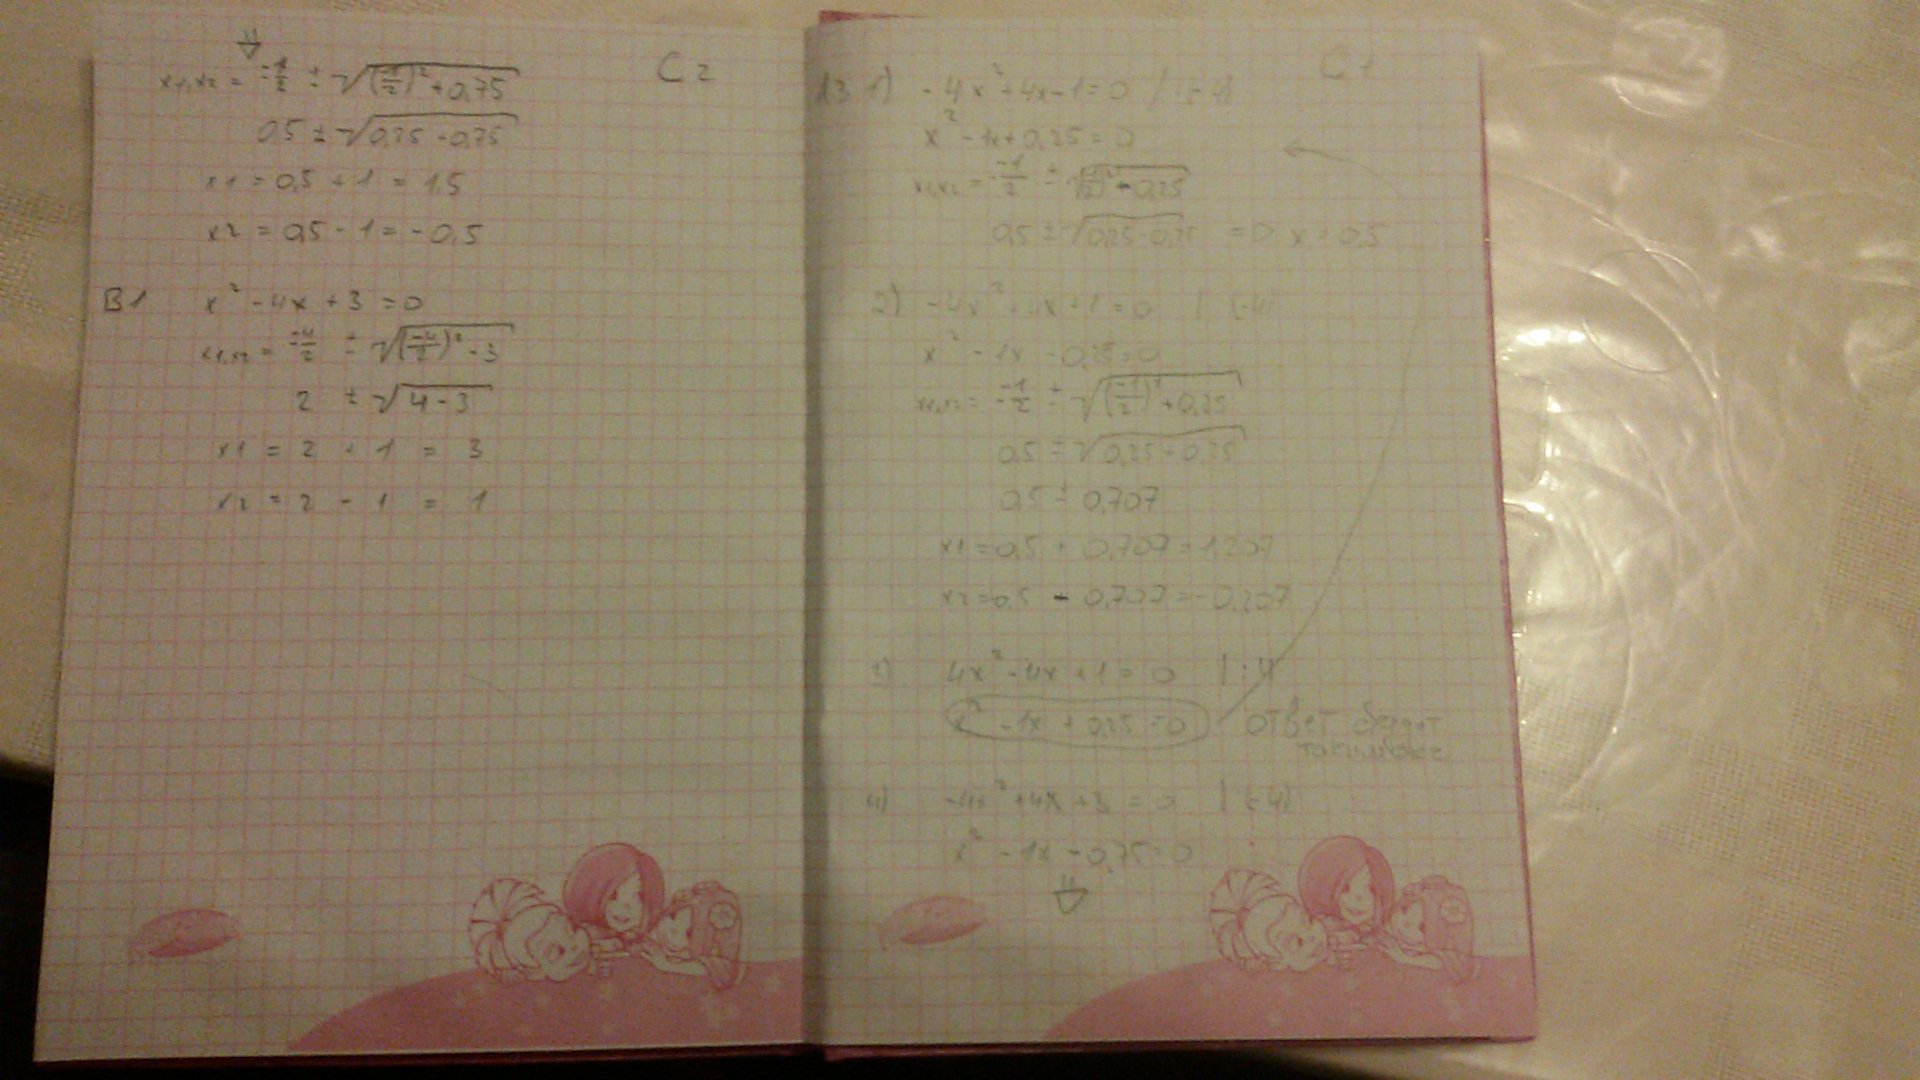 C 2
x1,x2 = -\frac{-1}{2} ± √((\frac{-1}{2})² + 0,75)
0,5 ± √(0,25 + 0,75)
x1 = 0,5 + 1 = 1,5
x2 = 0,5 - 1 = -0,5
B1 x² - 4x + 3 = 0
x1,x2 = -\frac{-4}{2} ± √((\frac{-4}{2})² - 3)
2 ± √(4 - 3)
x1 = 2 + 1 = 3
x2 = 2 - 1 = 1
C 1
1) -4x² + 4x - 1 = 0 / :(-4)
x² - 1x + 0,25 = 0
x1,x2 = -\frac{-1}{2} ± √((\frac{-1}{2})² - 0,25)
0,5 ± √(0,25 - 0,25) = 0 x = 0,5
2) -4x² + 4x + 1 = 0 | (-4)
x² - 1x - 0,25 = 0
x1,x2 = -\frac{-1}{2} ± √((\frac{-1}{2})² + 0,25)
0,5 ± √(0,25 + 0,25)
0,5 ± 0,707
x1 = 0,5 + 0,707 = 1,207
x2 = 0,5 - 0,707 = -0,207
3) 4x² - 4x + 1 = 0 | : 4
x² - 1x + 0,25 = 0 ответ будет
таким же
4) -4x² + 4x + 3 = 0 | :(-4)
x² - 1x - 0,75 = 0